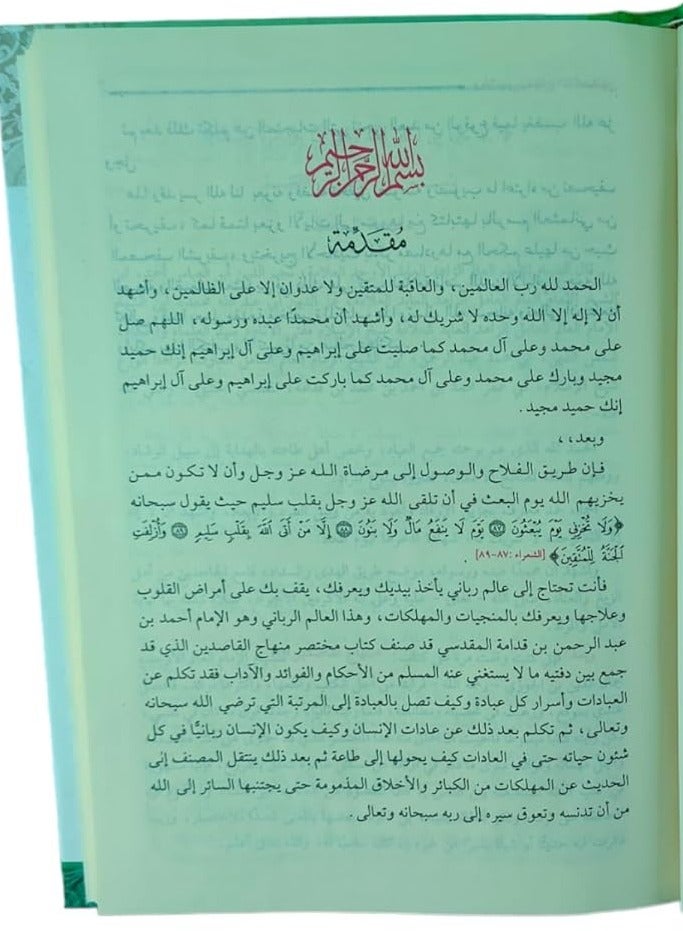 بسم الله الرحمن الرحيم
مُقَدِّمة
الحمد لله رب العالمين، والعاقبة للمتقين ولا عدوان إلا على الظالمين، وأشهد
أن لا إله إلا الله وحده لا شريك له، وأشهد أن محمدًا عبده ورسوله، اللهم صل
على محمد وعلى آل محمد كما صليت على إبراهيم وعلى آل إبراهيم إنك حميد
مجيد وبارك على محمد وعلى آل محمد كما باركت على إبراهيم وعلى آل إبراهيم
إنك حميد مجيد.
وبعد،،
فإن طريق الفلاح والوصول إلى مرضاة الله عز وجل وأن لا تكون ممن
يخزيهم الله يوم البعث في أن تلقى الله عز وجل بقلب سليم حيث يقول سبحانه
﴿وَلَا تُخْزِنِي يَوْمَ يُبْعَثُونَ ۝٨٧ يَوْمَ لَا يَنفَعُ مَالٌ وَلَا بَنُونَ ۝٨٨ إِلَّا مَنْ أَتَى اللَّهَ بِقَلْبٍ سَلِيمٍ ۝٨٩ وَأُزْلِفَتِ
الْجَنَّةُ لِلْمُتَّقِينَ﴾ [الشعراء: ٨٧-٨٩].
فأنت تحتاج إلى عالم رباني يأخذ بيديك ويعرفك، يقف بك على أمراض القلوب
وعلاجها ويعرفك بالمنجيات والمهلكات، وهذا العالم الرباني وهو الإمام أحمد بن
عبد الرحمن بن قدامة المقدسي قد صنف كتاب مختصر منهاج القاصدين الذي قد
جمع بين دفتيه ما لا يستغني عنه المسلم من الأحكام والفوائد والآداب فقد تكلم عن
العبادات وأسرار كل عبادة وكيف تصل بالعبادة إلى المرتبة التي ترضي الله سبحانه
وتعالى، ثم تكلم بعد ذلك عن عادات الإنسان وكيف يكون الإنسان ربانيًّا في كل
شئون حياته حتى في العادات كيف يحولها إلى طاعة ثم بعد ذلك ينتقل المصنف إلى
الحديث عن المهلكات من الكبائر والأخلاق المذمومة حتى يجتنبها السائر إلى الله
من أن تدنسه وتعوق سيره إلى ربه سبحانه وتعالى.